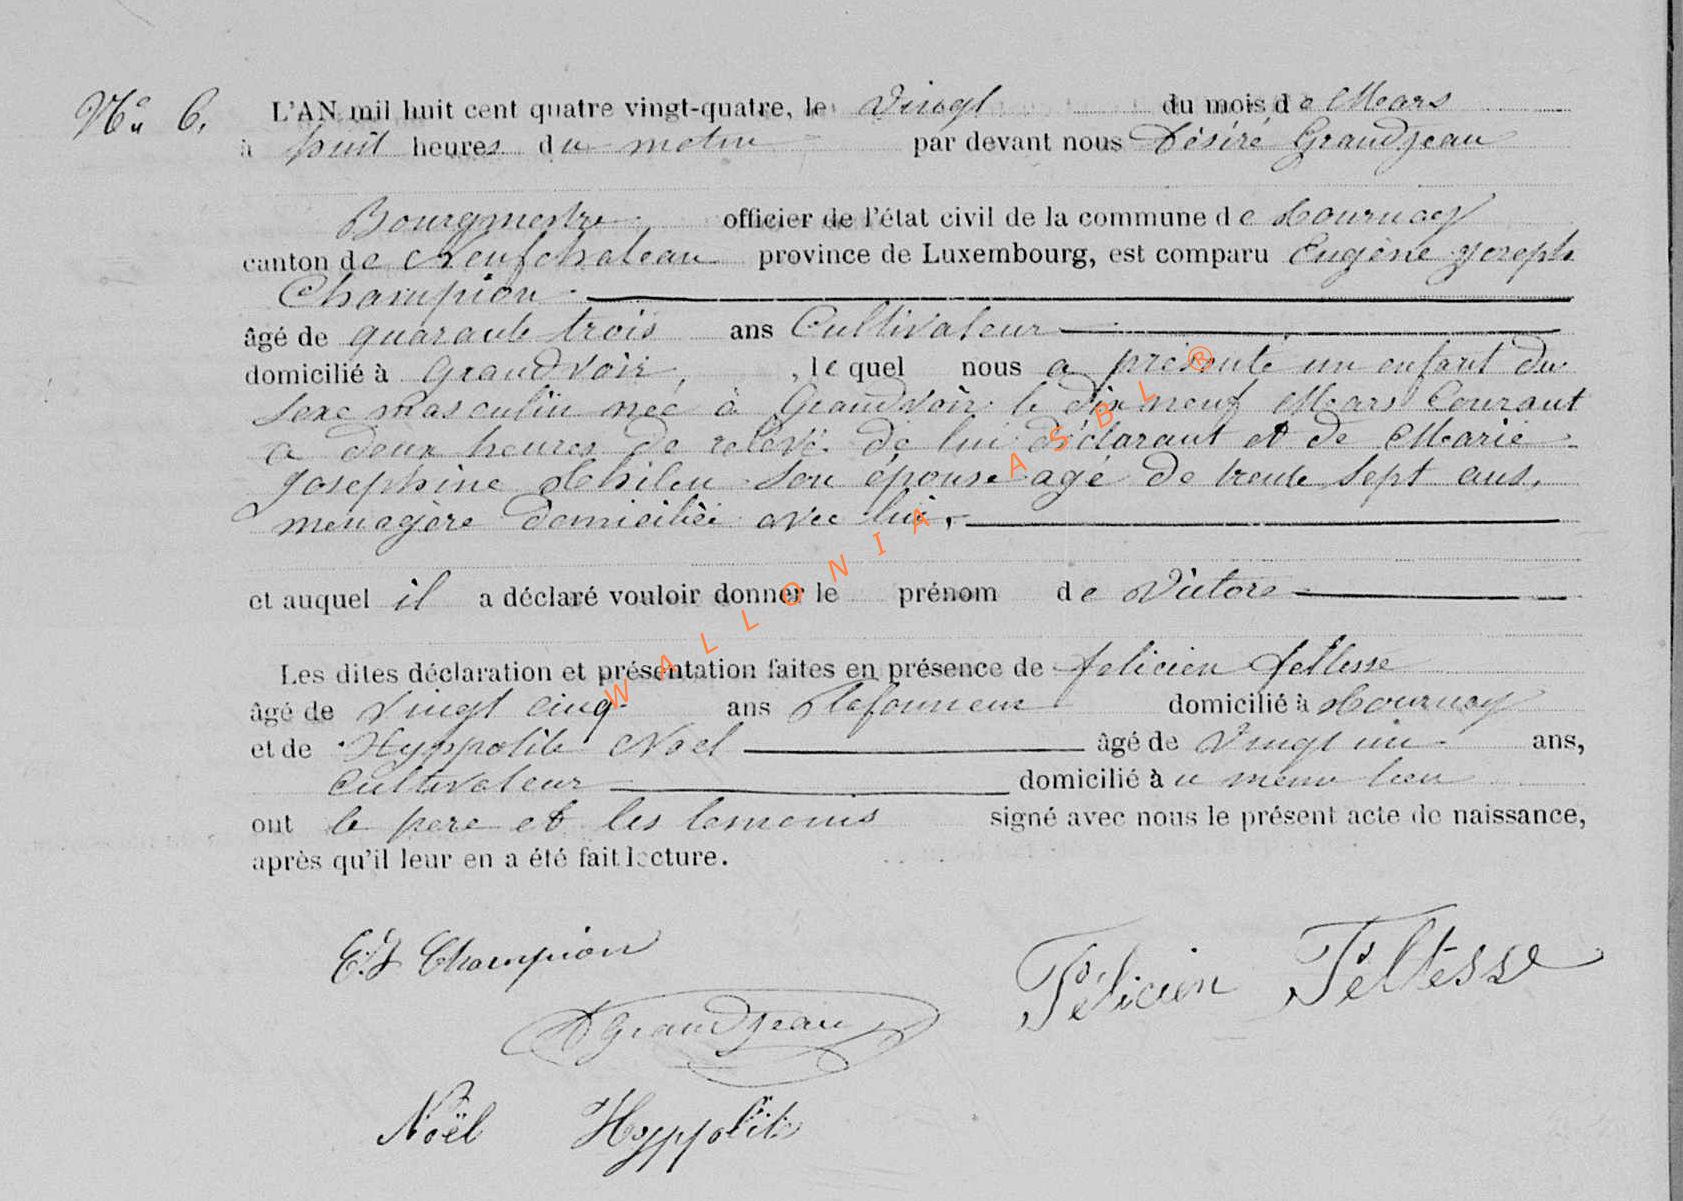 No 6. L'AN mil huit cent quatre vingt-quatre, le vingt du mois de Mars
à huit heures du matin par devant nous Désiré Grandjean
Bourgmestre officier de l'état civil de la commune de Tournay
canton de Neufchateau province de Luxembourg, est comparu Eugène Joseph
Champion
âgé de quarante trois ans Cultivateur
domicilié à Grandvoir, le quel nous a présenté un enfant du
sexe masculin née à Grandvoir le dix neuf Mars Courant
a deux heures de relevé de lui déclarant et de Marie
Josephine son épouse agé de trente sept ans,
menagère domiciliée avec lui,
et auquel il a déclaré vouloir donner le prénom de Victore
Les dites déclaration et présentation faites en présence de felicien feltesse
âgé de vingt cinq ans Plafonneur domicilié à Tournay
et de Hyppolite Noel âgé de vingt un ans,
Cultivateur domicilié à u meme lieu
ont le pere et les temoins signé avec nous le présent acte de naissance,
après qu'il leur en a été fait lecture.
E.J Champion
Félicien Feltesse
D Grandjean
Noël Hyppolite
WALLONIA ASBL ®